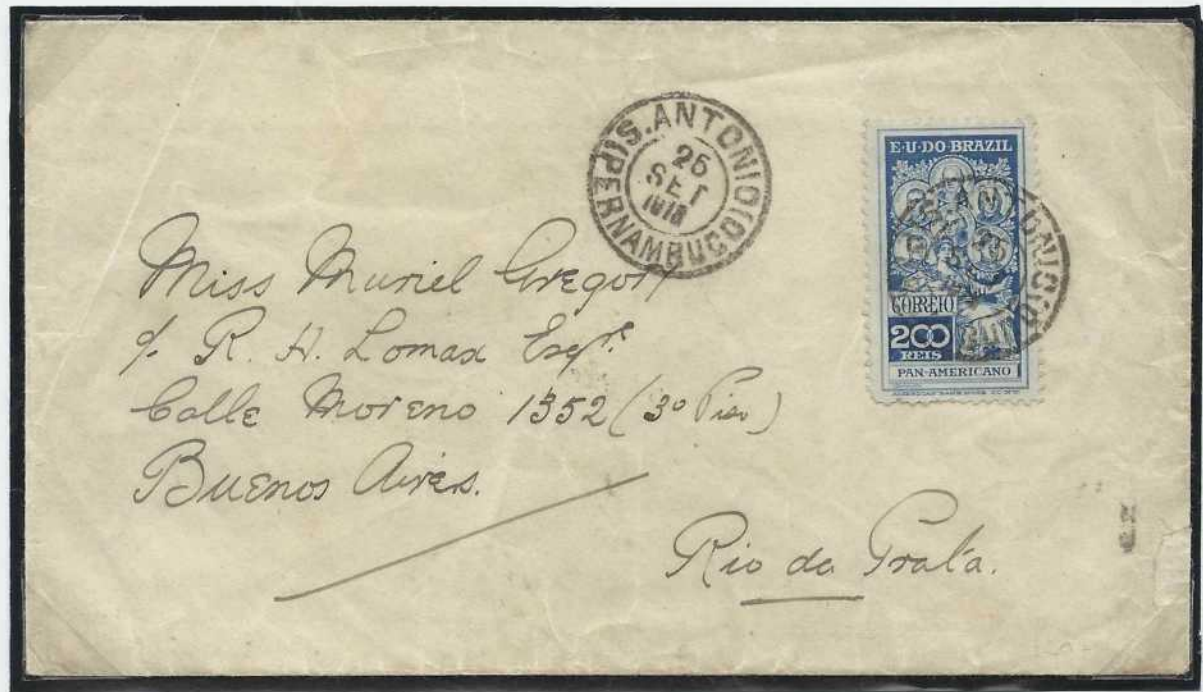 S. ANTONIO
26
SET
PERNAMBUCO
E·U·DO BRAZIL
ANTONIO
CORREIO
200
REIS
PAN-AMERICANO
Miss Muriel Gregory
c/o R. H. Lomax Esqre.
Calle Moreno 1352 (3º Piso)
Buenos Aires.
Rio da Prata.